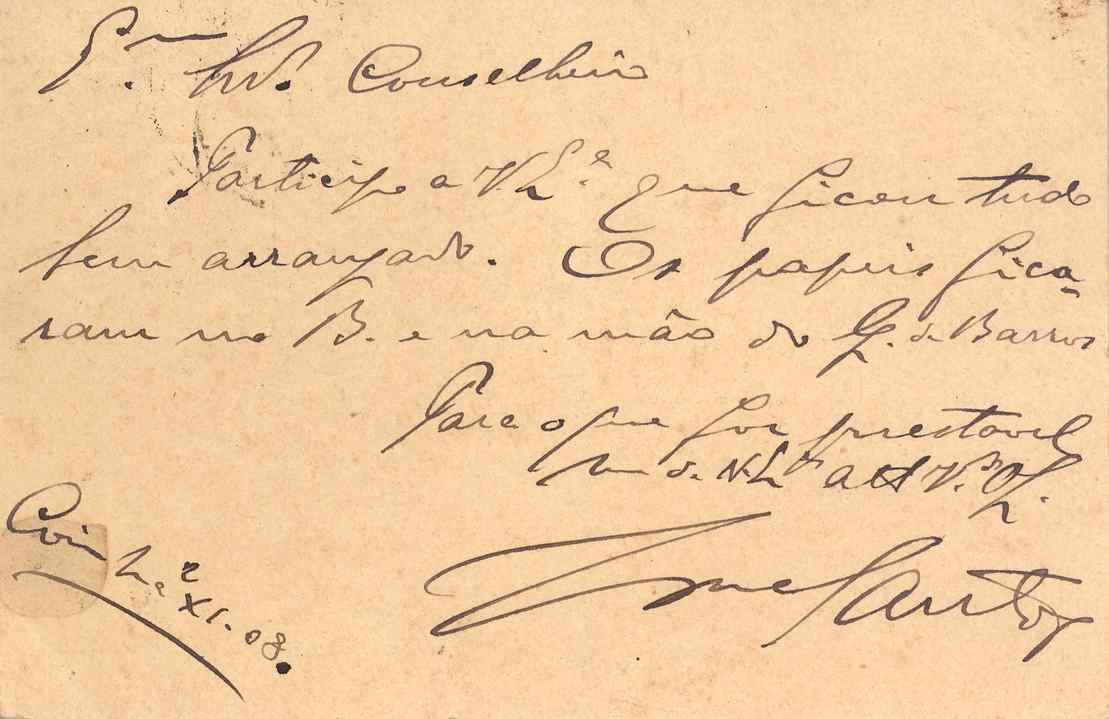 Conselheiro
Participo a V. Ex.ª que ficou tudo
bem arranjado. Os papeis fica-
ram no B. e na mão do G. de Barros
Para o que for prestavel
de
Santos
Coimbra 2
XI. 08.